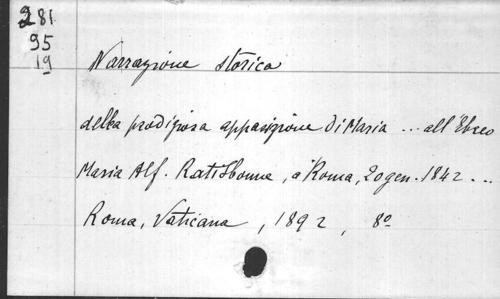 281
95
19
Narrazione storica
della prodigiosa apparizione di Maria ... all'Ebreo
Maria Alf. Ratisbonne, a Roma, 20 gen. 1842 ...
Roma, Vaticana, 1892, 8º